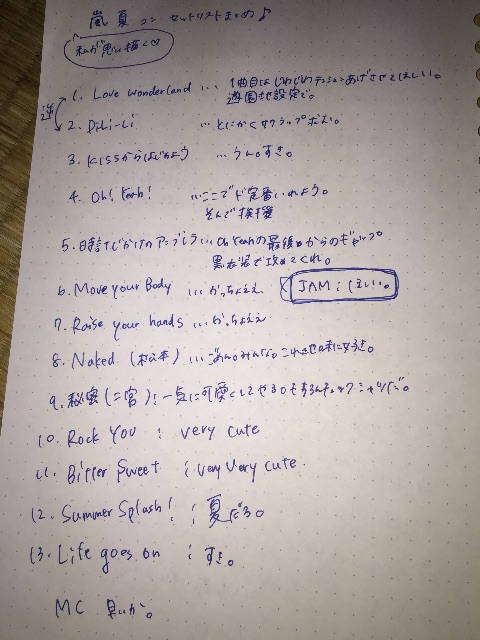 嵐 夏コン セットリストまとめ♪
私が思い描く♡
逆
1. Love wonderland … 1曲目はじわじわテンションあげさせてほしい。
遊園地設定で。
2. DiLi-Li … とにかくサクラップだよ。
3. Kissからはじめよう … うん。すき。
4. Oh! Yeah! … ここでド定番いれよう。
そんで挨拶
5. 時計じかけのアンブレラ … Oh Yeahの最後のからのギャップ
黒衣装で攻めてくれ。
6. Move your Body … かっちょええ JAM:ほしい。
7. Raise your hands … かっちょええ
8. Naked (松本) … ごめん。みんな。これさせ
9. 秘密 (二宮) : 一気に可愛くして
10. Rock You : very cute
11. Bitter Sweet : very very cute.
12. Summer Splash! : 夏だろ。
13. Life goes on : すき。
MC 長いが。